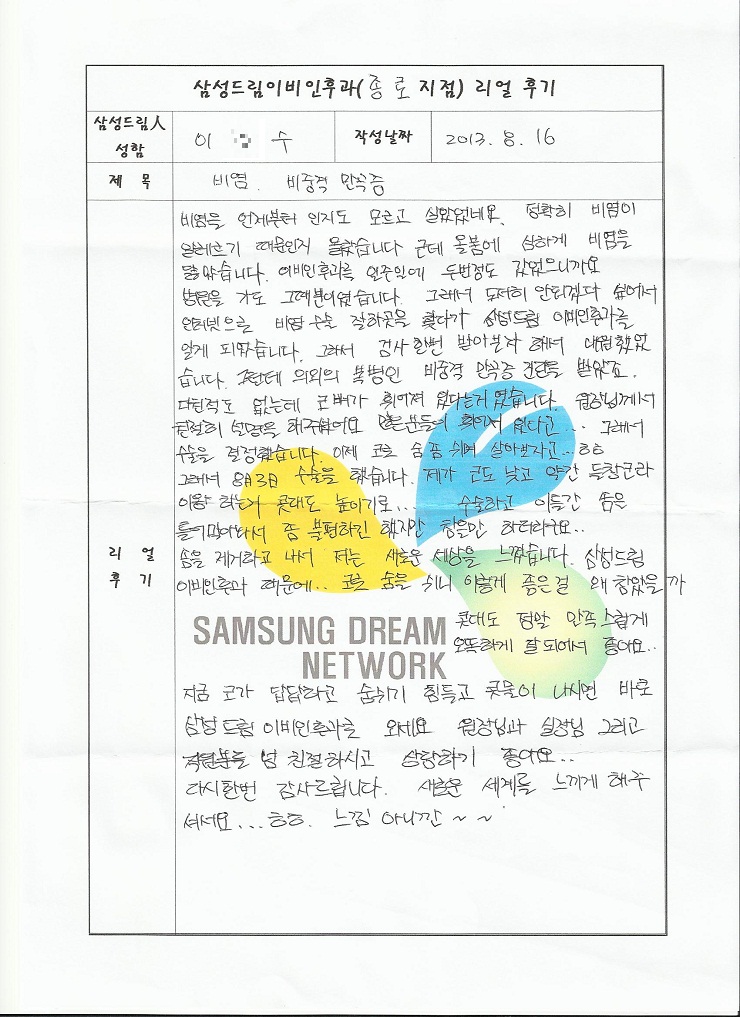 삼성드림이비인후과(종로지점) 리얼 후기
삼성드림人
성함
이 수
작성날짜
2013. 8. 16
제 목
비염. 비중격 만곡증
리 얼
후 기
비염을 언제부터 인지도 모르고 살았었네요. 정확히 비염이
알레르기 때문인지 몰랐습니다 근데 올봄에 심하게 비염을
앓았습니다. 이비인후과를 일주일에 두번정도 갔었으니까요
병원을 가도 그때뿐이였습니다. 그래서 도저히 안되겠다 싶어서
인터넷으로 비염 수술 잘하곳을 찾다가 삼성드림 이비인후과를
알게 되었습니다. 그래서 검사한번 받아보자 해서 내원했었
습니다. 그런데 의외의 복병인 비중격 만곡증 진단을 받았죠.
다친적도 없는데 코뼈가 휘어져 있다는거였습니다. 원장님께서
친절히 설명을 해주셨어요 많은분들이 휘어져 있다고... 그래서
수술을 결정했습니다. 이제 코로 숨 좀 쉬며 살아보자고...ㅎㅎ
그래서 8月3日 수술을 했습니다. 제가 코도 낮고 약간 들창코라
이왕 하는거 콧대도 높이기로.... 수술하고 이틀간 솜을
틀어막아놔서 좀 불편하긴 했지만 참을만 하더라구요..
솜을 제거하고 나서 저는 새로운 세상을 느꼈습니다. 삼성드림
이비인후과 때문에... 코로 숨을 쉬니 이렇게 좋은걸 왜 참았을까
콧대도 정말 만족스럽게
오똑하게 잘되어서 좋아요..
SAMSUNG DREAM
NETWORK
지금 코가 답답하고 숨쉬기 힘들고 콧물이 나시면 바로
삼성드림이비인후과를 와세요 원장님과 실장님 그리고
직원분들 넘 친절하시고 상담하기 좋아요..
다시한번 감사드립니다. 새로운 세계를 느끼게 해주
셔서요...ㅎㅎ. 느낌 아니깐 ~ ~